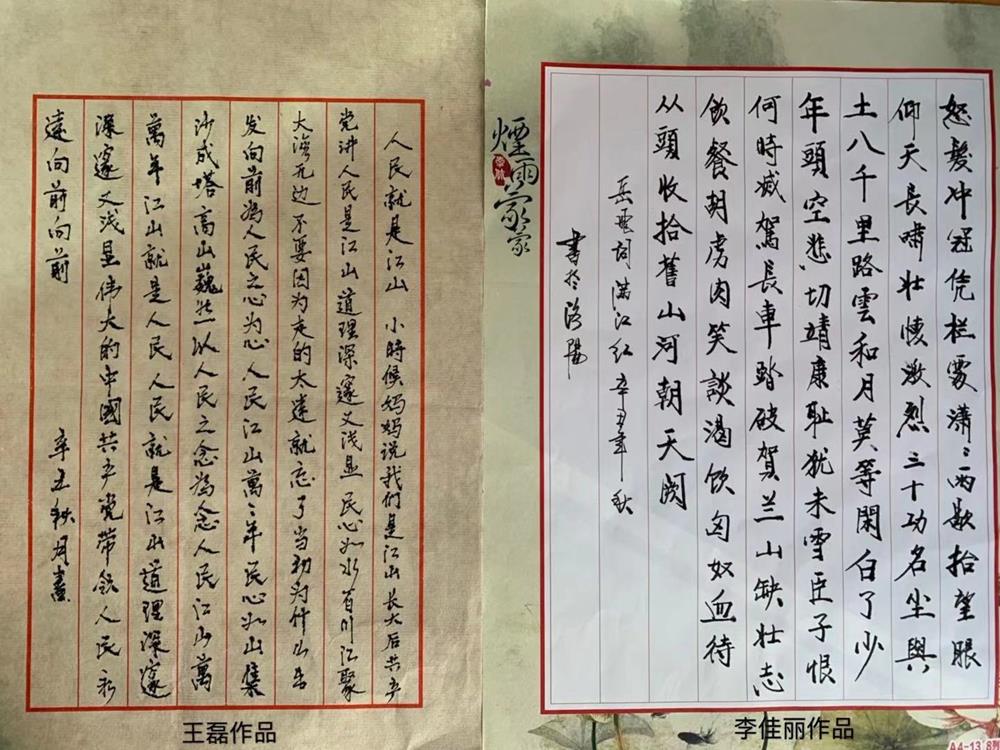 人民就是江山 小時候妈妈说我们是江山 长大后共产
党讲人民是江山 道理深邃又浅显 民心如水百川江聚
大海无边 不要因为走的太远就忘了当初为什么出
发向前為人民之心为心 人民江山萬々年 民心如山集
沙成塔 高山巍然 以人民之念為念 人民江山萬
萬年 江山就是人民 人民就是江山 道理深邃
深邃又浅显 伟大的中國共产党带领人民永
遠向前向前
辛丑秋月書
王磊作品
煙雨蒙蒙
怒髮冲冠凭栏處潇々雨歇抬望眼
仰天長啸壮懷激烈三十功名尘與
土八千里路雲和月莫等閑白了少
年頭空悲切靖康耻犹未雪臣子恨
何時滅駕長車踏破賀兰山缺壮志
飢餐胡虏肉笑談渴饮匈奴血待
从頭收拾舊山河朝天阙
岳飛詞满江红 辛丑年秋
書於洛陽
李佳丽作品